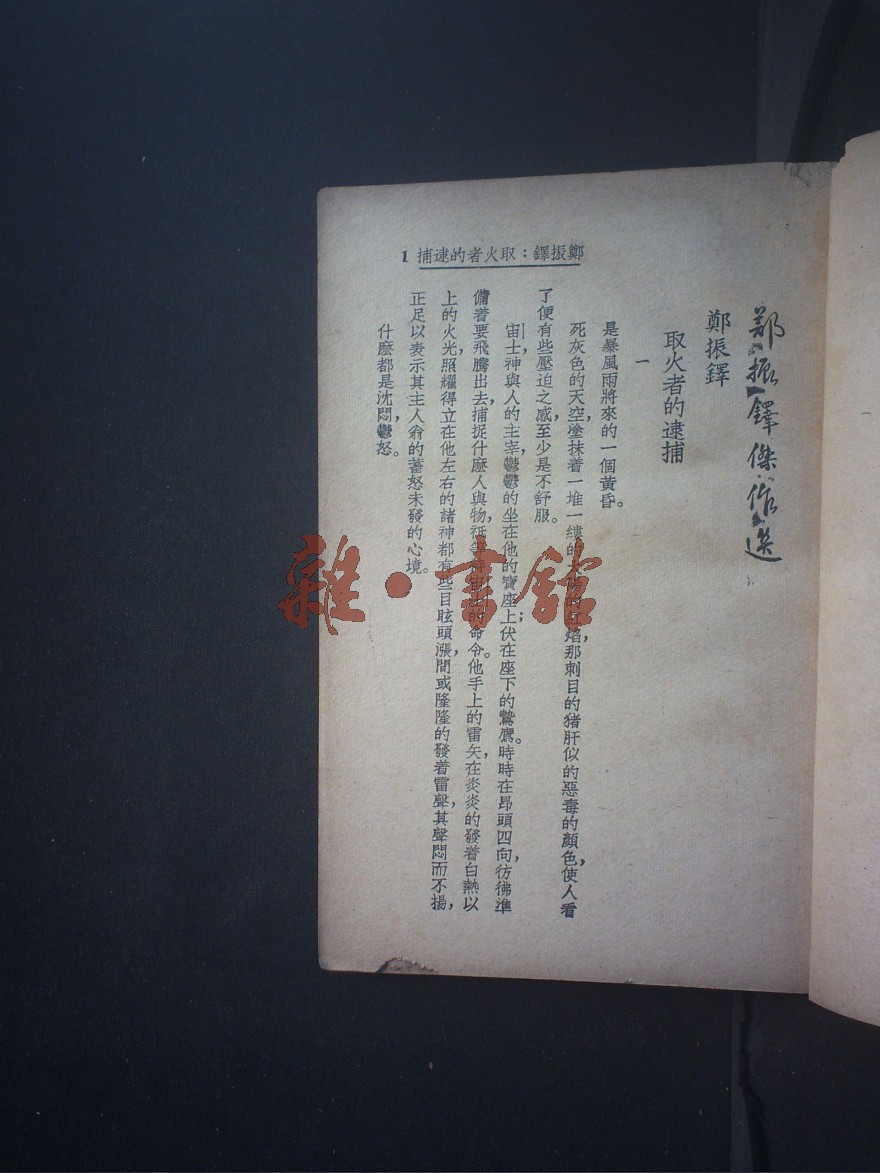 鄭振鐸：取火者的逮捕 1
鄭振鐸傑作選
鄭振鐸
取火者的逮捕
一
是暴風雨將來的一個黃昏。
死灰色的天空，塗抹着一堆一縷的太陽的紅焰，那刺目的猪肝似的惡毒的顏色，使人看
了便有些壓迫之感，至少是不舒服。
宙士，神與人的主宰，鬱鬱的坐在他的寶座上；伏在座下的鷙鷹，時時在昂頭四向，彷彿準
備着要飛騰出去，捕捉什麼人與物，祇等待宙士的命令。他手上的雷矢，在炎炎的發着白熱以
上的火光，照耀得立在他左右的諸神都有些目眩頭漲，間或隆隆的發着雷聲，其聲悶而不揚，
正足以表示其主人翁的蓄怒未發的心境。
什麼都是沈悶，鬱怒。
雜·書館